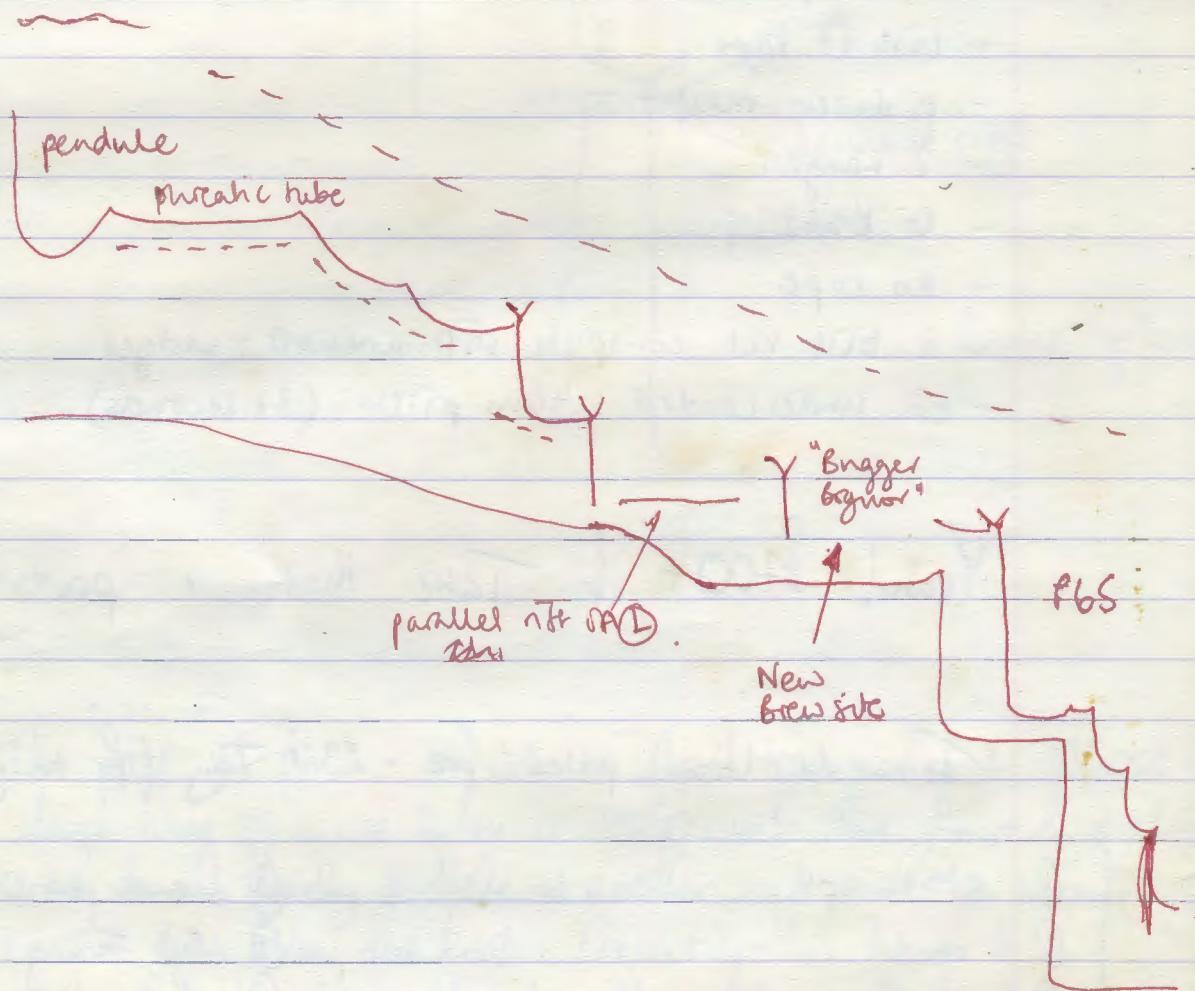 pendule
phreatic tube
"Bugger
Bognor"
parallel rift
P65
New
Brew site